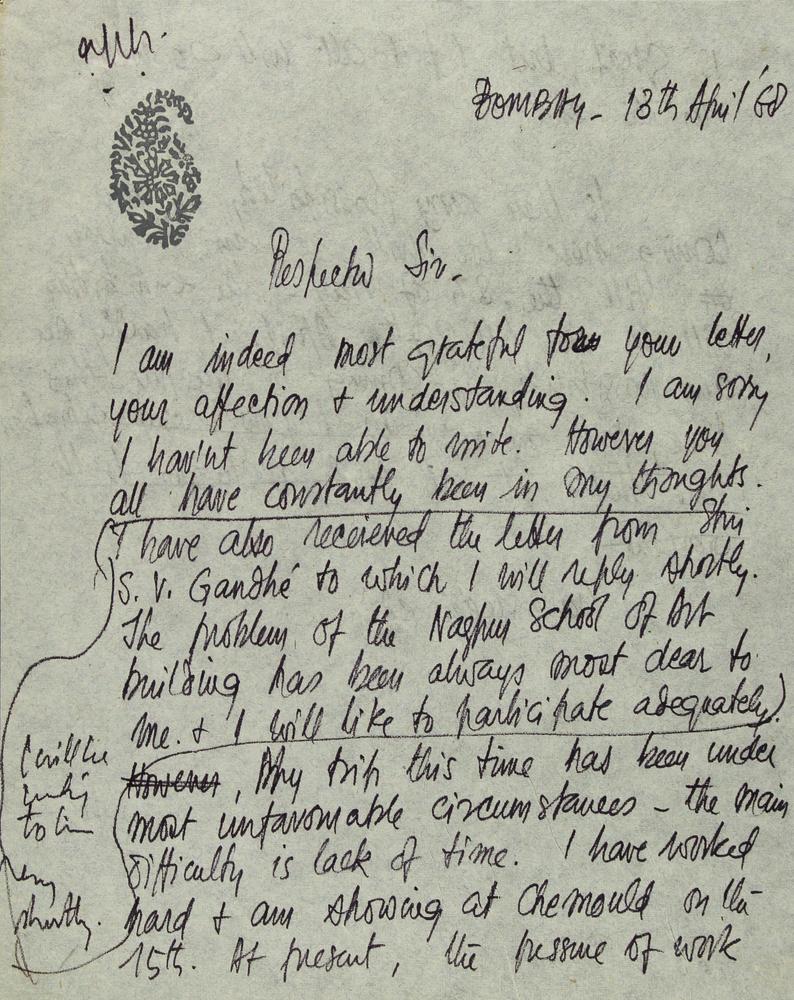 BOMBAY - 13th April '68
Respected Sir.
I am indeed most grateful for your letter,
your affection & understanding. I am sorry
I hav'nt been able to write. However you
all have constantly been in my thoughts.
(I have also received the letter from Shri
S. V. Gandhé to which I will reply shortly.
The problem of the Nagpur School of Art
building has been always most dear to
me. & I will like to participate adequately).
However, My trip this time has been under
most unfavourable circumstances - the main
difficulty is lack of time. I have worked
hard & am showing at Chemould on the
15th. At present, the pressure of work
I will be
writing
to him
very
shortly.